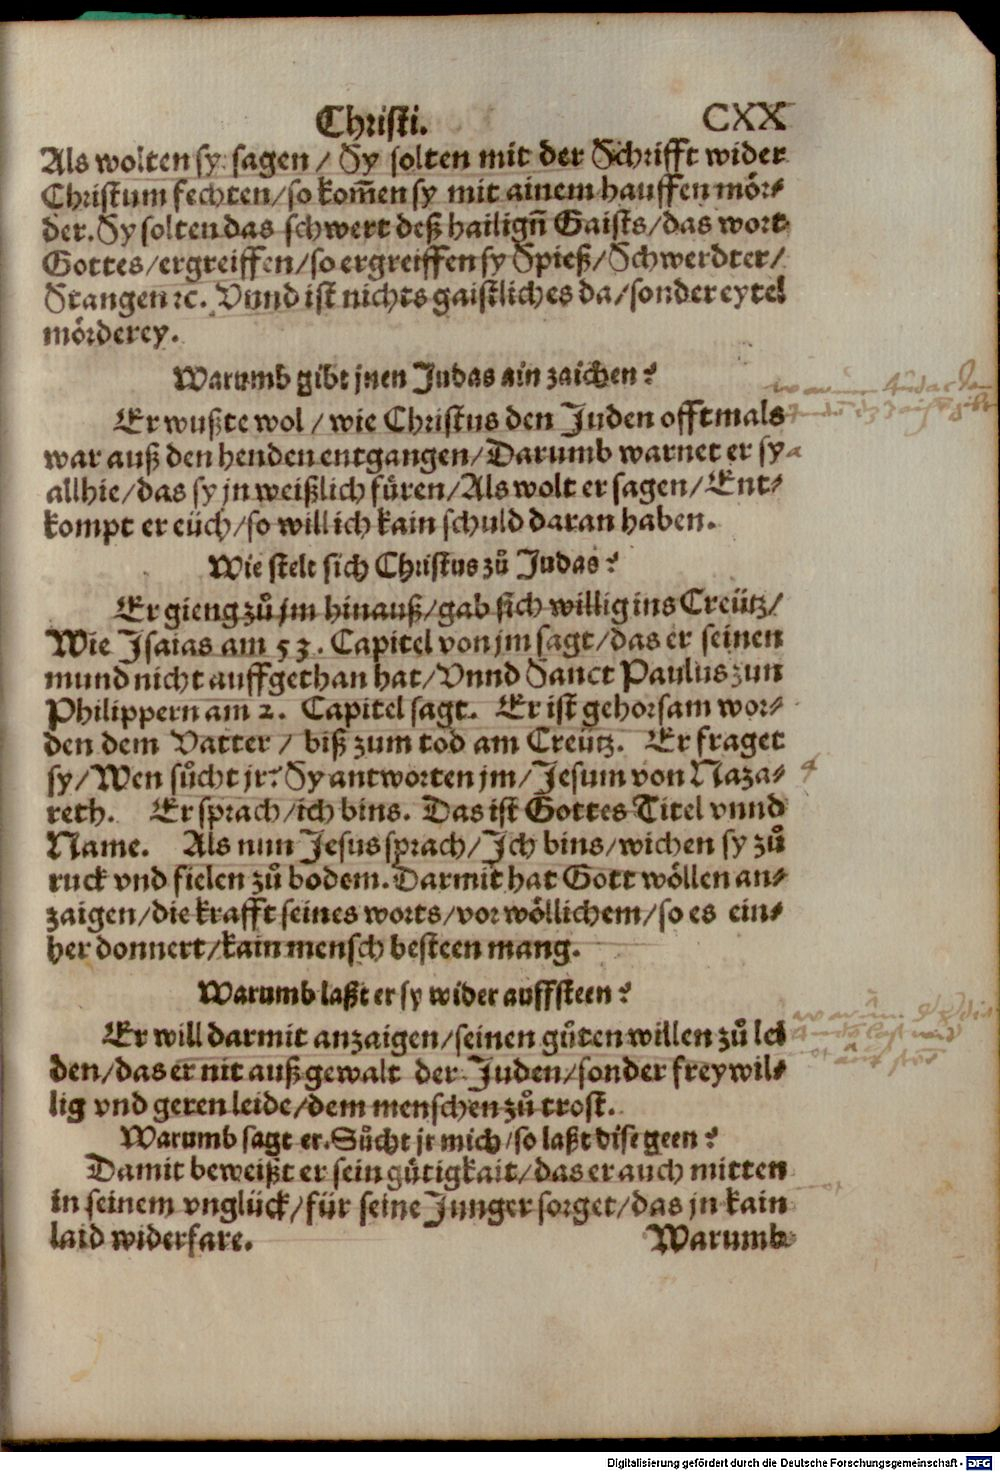 Christi. CXX
Als wolten sy sagen / Sy solten mit der Schrifft wider
Christum fechten/so kom̄en sy mit ainem hauffen mör⸗
der. Sy solten das schwert deß hailign̄ Gaists/das wort
Gottes/ergreiffen/so ergreiffen sy Spieß/Schwerdter/
Stangen ꝛc. Vnnd ist nichts gaistliches da/sonder eytel
mörderey.
Warumb gibt jnen Judas ain zaichen?
Er wußte wol / wie Christus den Juden offtmals
war auß den henden entgangen/Darumb warnet er sy
allhie/das sy jn weißlich füren/Als wolt er sagen/Ent⸗
kompt er eüch/so will ich kain schuld daran haben.
Wie stelt sich Christus zů Judas?
Er gieng zů jm hinauß/gab sich willig ins Creütz/
Wie Isaias am 53. Capitel von jm sagt/das er seinen
mund nicht auffgethan hat/Vnnd Sanct Paulus zun
Philippern am 2. Capitel sagt. Er ist gehorsam wor⸗
den dem Vatter / biß zum tod am Creütz. Er fraget
sy/Wen sůcht jr? Sy antworten jm/Jesum von Naza⸗
reth. Er sprach/ich bins. Das ist Gottes Titel vnnd
Name. Als nun Jesus sprach/Ich bins/wichen sy zů
ruck vnd fielen zů bodem. Darmit hat Gott wöllen an⸗
zaigen/die krafft seines worts/vor wöllichem/so es ein⸗
her donnert/kain mensch besteen mang.
Warumb laßt er sy wider auffsteen?
Er will darmit anzaigen/seinen gůten willen zů lei
den/das er nit auß gewalt der Juden/sonder freywil⸗
lig vnd geren leide/dem menschen zů trost.
Warumb sagt er. Sůcht jr mich/so laßt dise geen?
Damit beweißt er sein gütigkait/das er auch mitten
in seinem vnglück/für seine Junger sorget/das jn kain
laid widerfare. Warumb
Digitalisierung gefördert durch die Deutsche Forschungsgemeinschaft - DFG